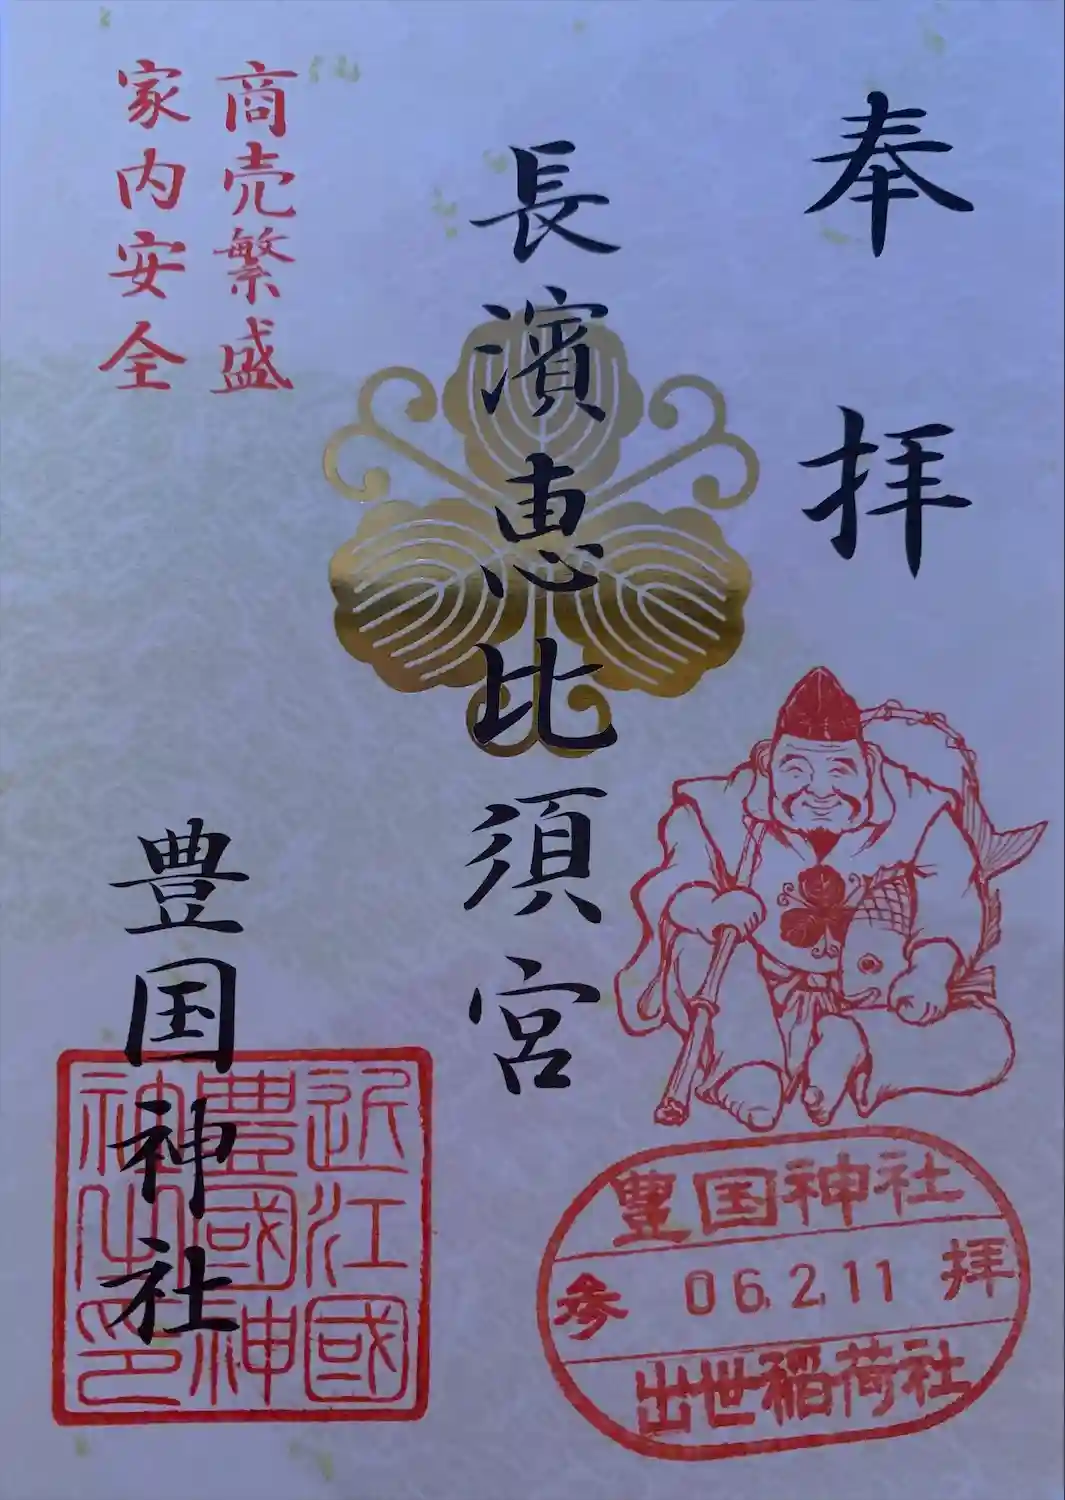 奉拝
長濱恵比須宮
商売繁盛
家内安全
豊国神社
近江國
豊國神
社之印
豊国神社
参 06.2.11 拝
出世稲荷社